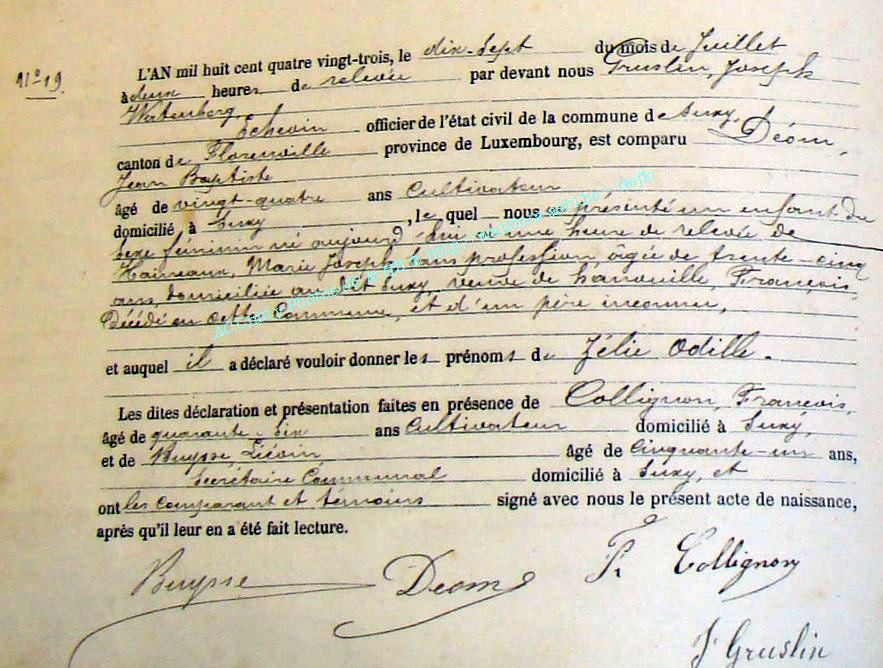 N° 19
L'AN mil huit cent quatre vingt-trois, le dix-sept du mois de Juillet
à deux heures de relevée par devant nous Gruslin, Joseph
Echevin officier de l'état civil de la commune de Suxy,
canton de Florenville province de Luxembourg, est comparu Déom,
Jean Baptiste
âgé de vingt-quatre ans Cultivateur
domicilié, à Suxy, le quel nous a présenté un enfant du
sexe féminin né aujourd'hui à une heure de relevée de
Marie Joseph sans profession âgée de trente-cinq
ans, domiciliée au dit Suxy, veuve de François,
Décédé en cette Commune, et d'un père inconnu,
et auquel il a déclaré vouloir donner les prénoms de Zélie Odille.
Les dites déclaration et présentation faites en présence de Collignon, François,
âgé de quarante-six ans Cultivateur domicilié à Suxy,
et de Buysse, Liévin âgé de Cinquante-un ans,
Secrétaire Communal domicilié à Suxy, et
ont les comparant et témoins signé avec nous le présent acte de naissance,
après qu'il leur en a été fait lecture.
Buysse Deom Fr Collignon
J Gruslin